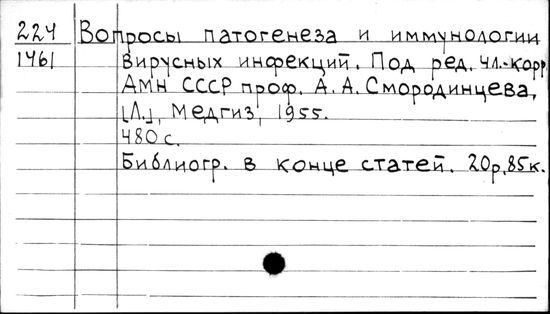 224 Вопросы патогенеза и иммунологии
1461 вирусных инфекций. Под ред. чл.-корр.
АМН СССР проф. А. А. Смородинцева,
[Л.], Медгиз, 1955.
480 с.
Библиогр. в конце статей. 20р.85к.